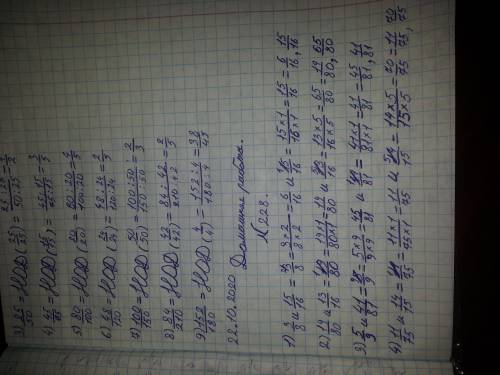 3) 25/50 = НОД (25/25) = 25:25/50:25 = 1/2
4) 45/65 = НОД (15/15) = 45:15/65:15 = 3/5
5) 80/100 = НОД (20/20) = 80:20/100:20 = 4/5
6) 48/120 = НОД (24/24) = 48:24/120:24 = 2/5
7) 100/150 = НОД (50/50) = 100:50/150:50 = 2/3
8) 84/210 = НОД (42/42) = 84:42/210:42 = 2/5
9) 152/180 = НОД (4/4) = 152:4/180:4 = 38/45
22.10.2020 Домашняя работа.
N228.
1) 3/8 и 15/16 = 3×2/8×2 = 6/16 и 15×1/16×1 = 15/16 = 6/16, 15/16
2) 17/80 и 13/16 = 17×1/80×1 = 17/80 и 13×5/16×5 = 65/80 = 17/80, 65/80
3) 5/9 и 41/81 = 5×9/9×9 = 45/81 и 41×1/81×1 = 41/81 = 45/81, 41/81
4) 11/75 и 14/15 = 11×1/75×1 = 11/75 и 14×5/15×5 = 70/75 = 11/75, 70/75